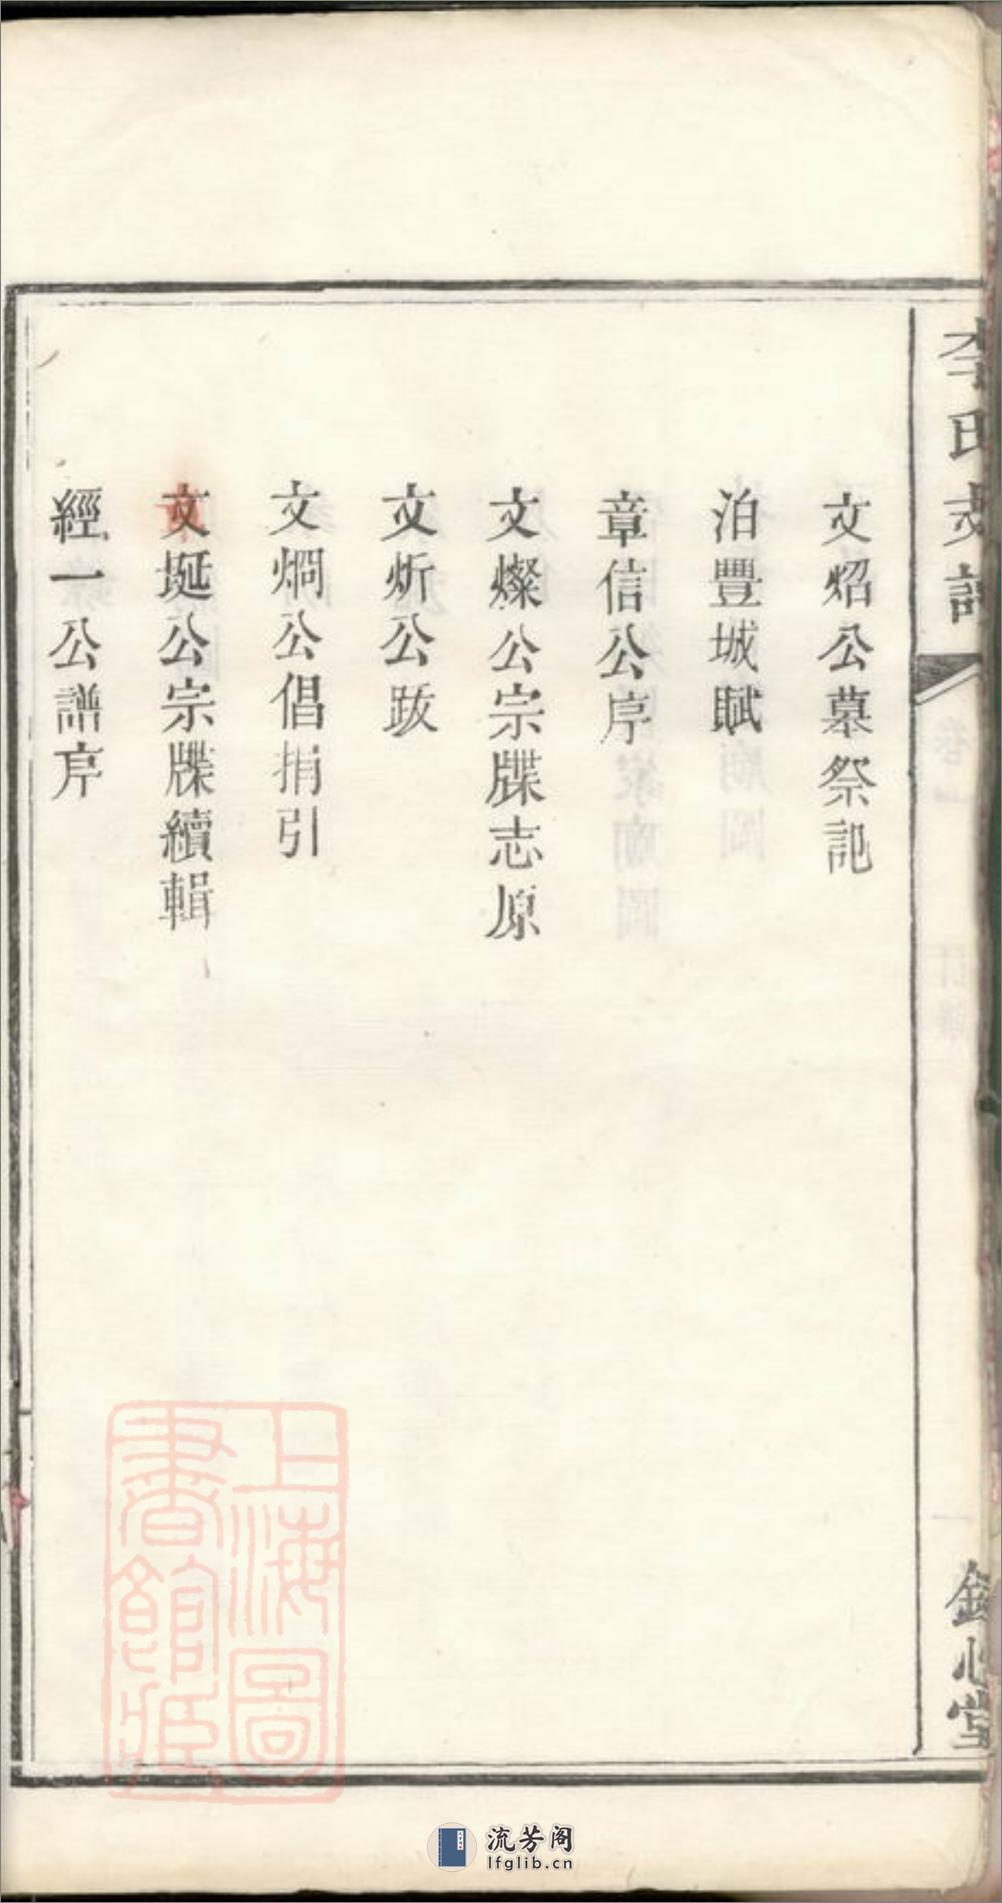 李氏支譜
錦心堂
文炤公墓祭記
泊豐城賦
章信公序
文燦公宗牒志原
文炘公跋
文烱公倡捐引
文埏公宗牒續輯
經一公譜序
上海圖
書館藏
流芳阁
lfglib.cn